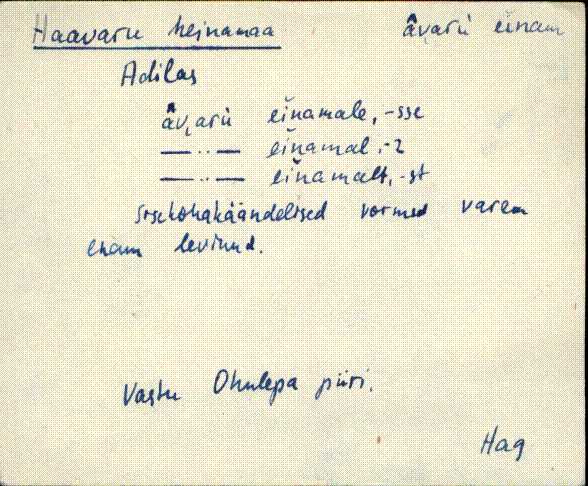 Haavaru heinamaa âv̬arù eĭnam
Adilas
âv̬arù eĭnamale, -sse
— ‥ — eĭnamal, -z
— ‥ — eĭnamalt, -st
Sisekohakäändelised vormid varem
enam levinud.
Vastu Ohulepa piiri.
Hag